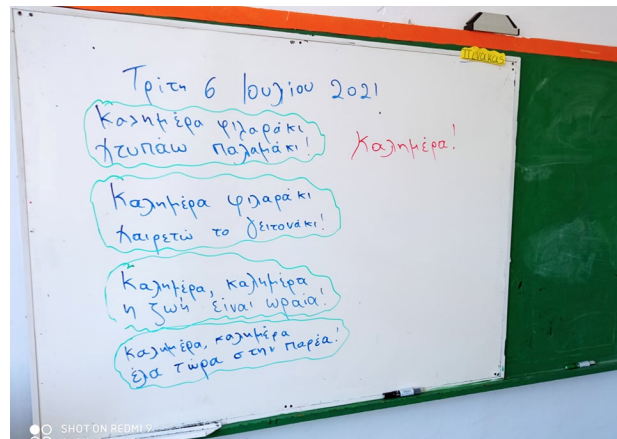 Πίνακας
Τρίτη 6 Ιουλίου 2021
Καλημέρα φιλαράκι
χτυπάω παλαμάκι!
Καλημέρα!
Καλημέρα φιλαράκι
χαιρετώ το γειτονάκι!
Καλημέρα, καλημέρα
η ζωή είναι ωραία!
Καλημέρα, καλημέρα
έλα τώρα στην παρέα!
SHOT ON REDMI 9